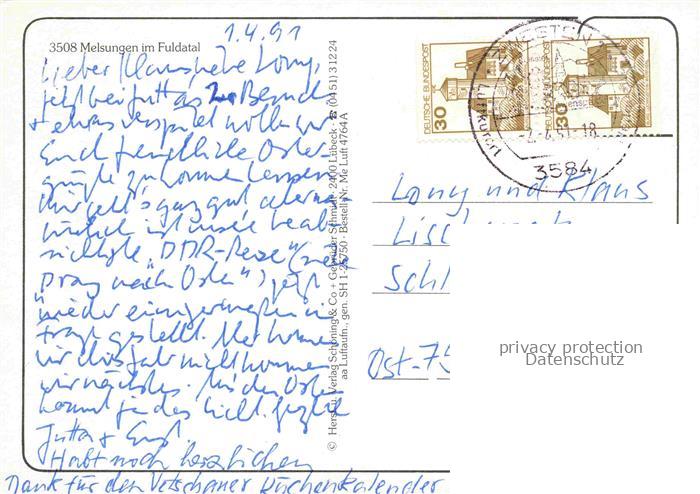 1.4.91
3508 Melsungen im Fuldatal
Lieber Klaus, liebe Lony,
jetzt bei Jutta zu Besuch
+ etwas verspätet wollen wir
Euch freundliche Oster-
grüße zukommen lassen.
geht's ganz gut, aller
ist unsre beab-
sichtigte "DDR-Reise"
Drang nach Osten") jetzt
wieder einigermaßen in
Frage gestellt.
wir dies Jahr nicht kommen
wir nächstes. Aus dem Osten
kommt ja das Licht.
Jutta +
Habt noch herzlichen
Dank für den Vetschauer Küchenkalender
© Herst. u. Verlag Schöning & Co + Gebrüder Schmidt, 2400 Lübeck · ☎ (0451) 31224
aa Luftaufn., gen. SH 1-25750 · Bestell-Nr. Me Luft 4764A
DEUTSCHE BUNDESPOST
30
30
Luftkurort
3584
Lony und Klaus
Ost-75
privacy protection
Datenschutz